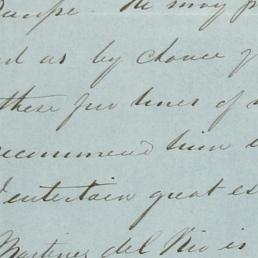 He may
as by chance
these few lines of
recommend him
entertain great es
Martinez del Rio is